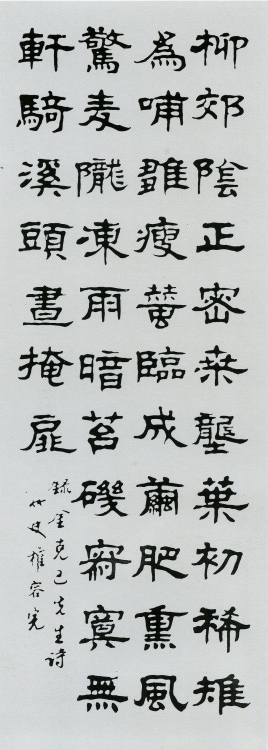 柳郊陰正密桒壟葉初稀雉
為哺雛瘦蚕臨成繭肥熏風
驚麦隴凍雨暗苔磯寂寞無
軒騎溪頭晝掩扉
録金克己先生詩
竹史權容完